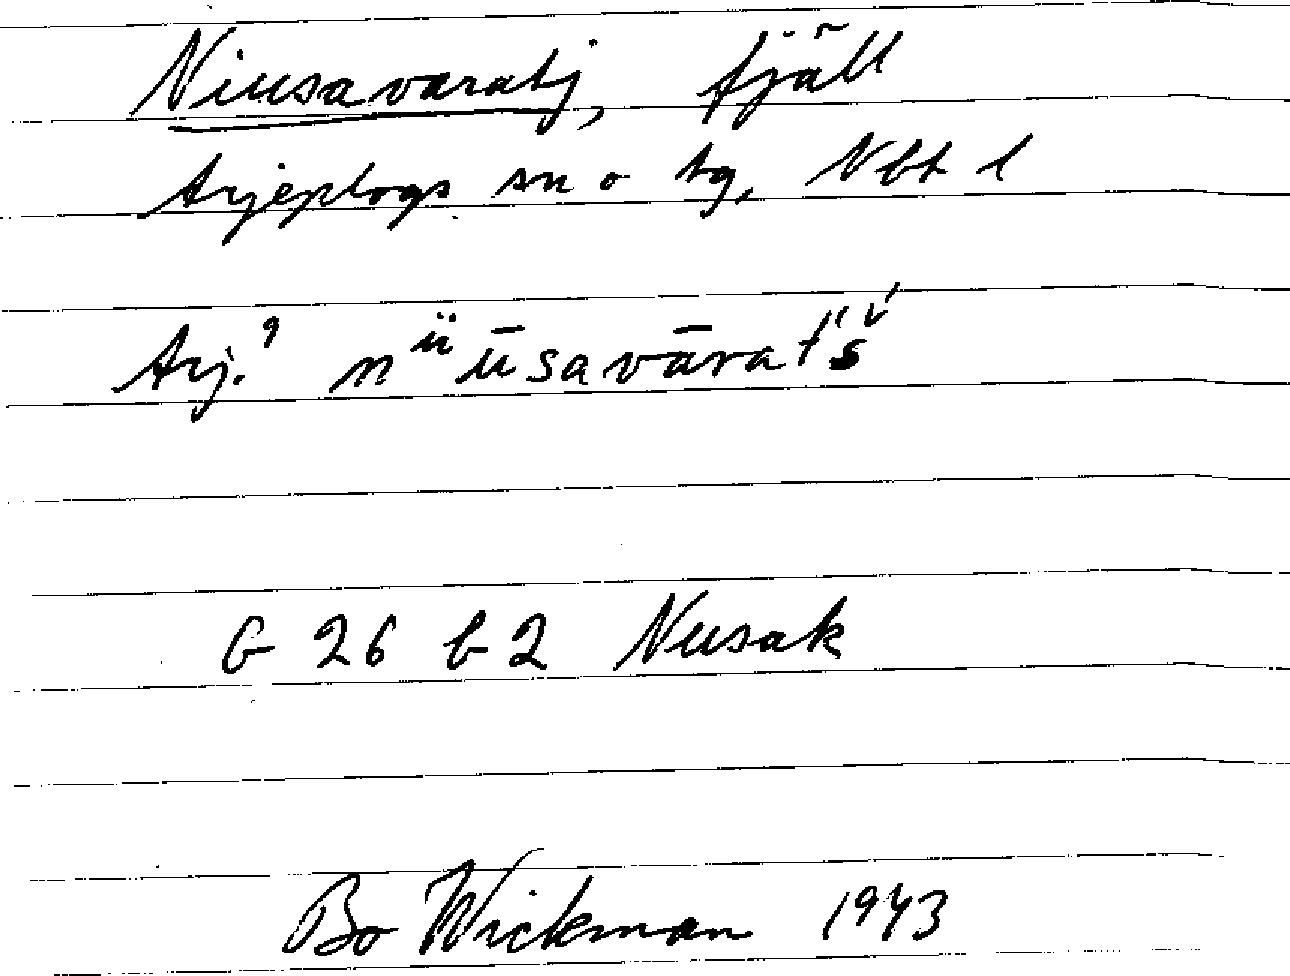 Niusavaratj, fjäll
Arjeplogs sn o tg, Nbt l
Arj.⁹ nᵘ̈ūsavārat́śv́
G 26 b 2 Nusak
Bo Wickman 1943